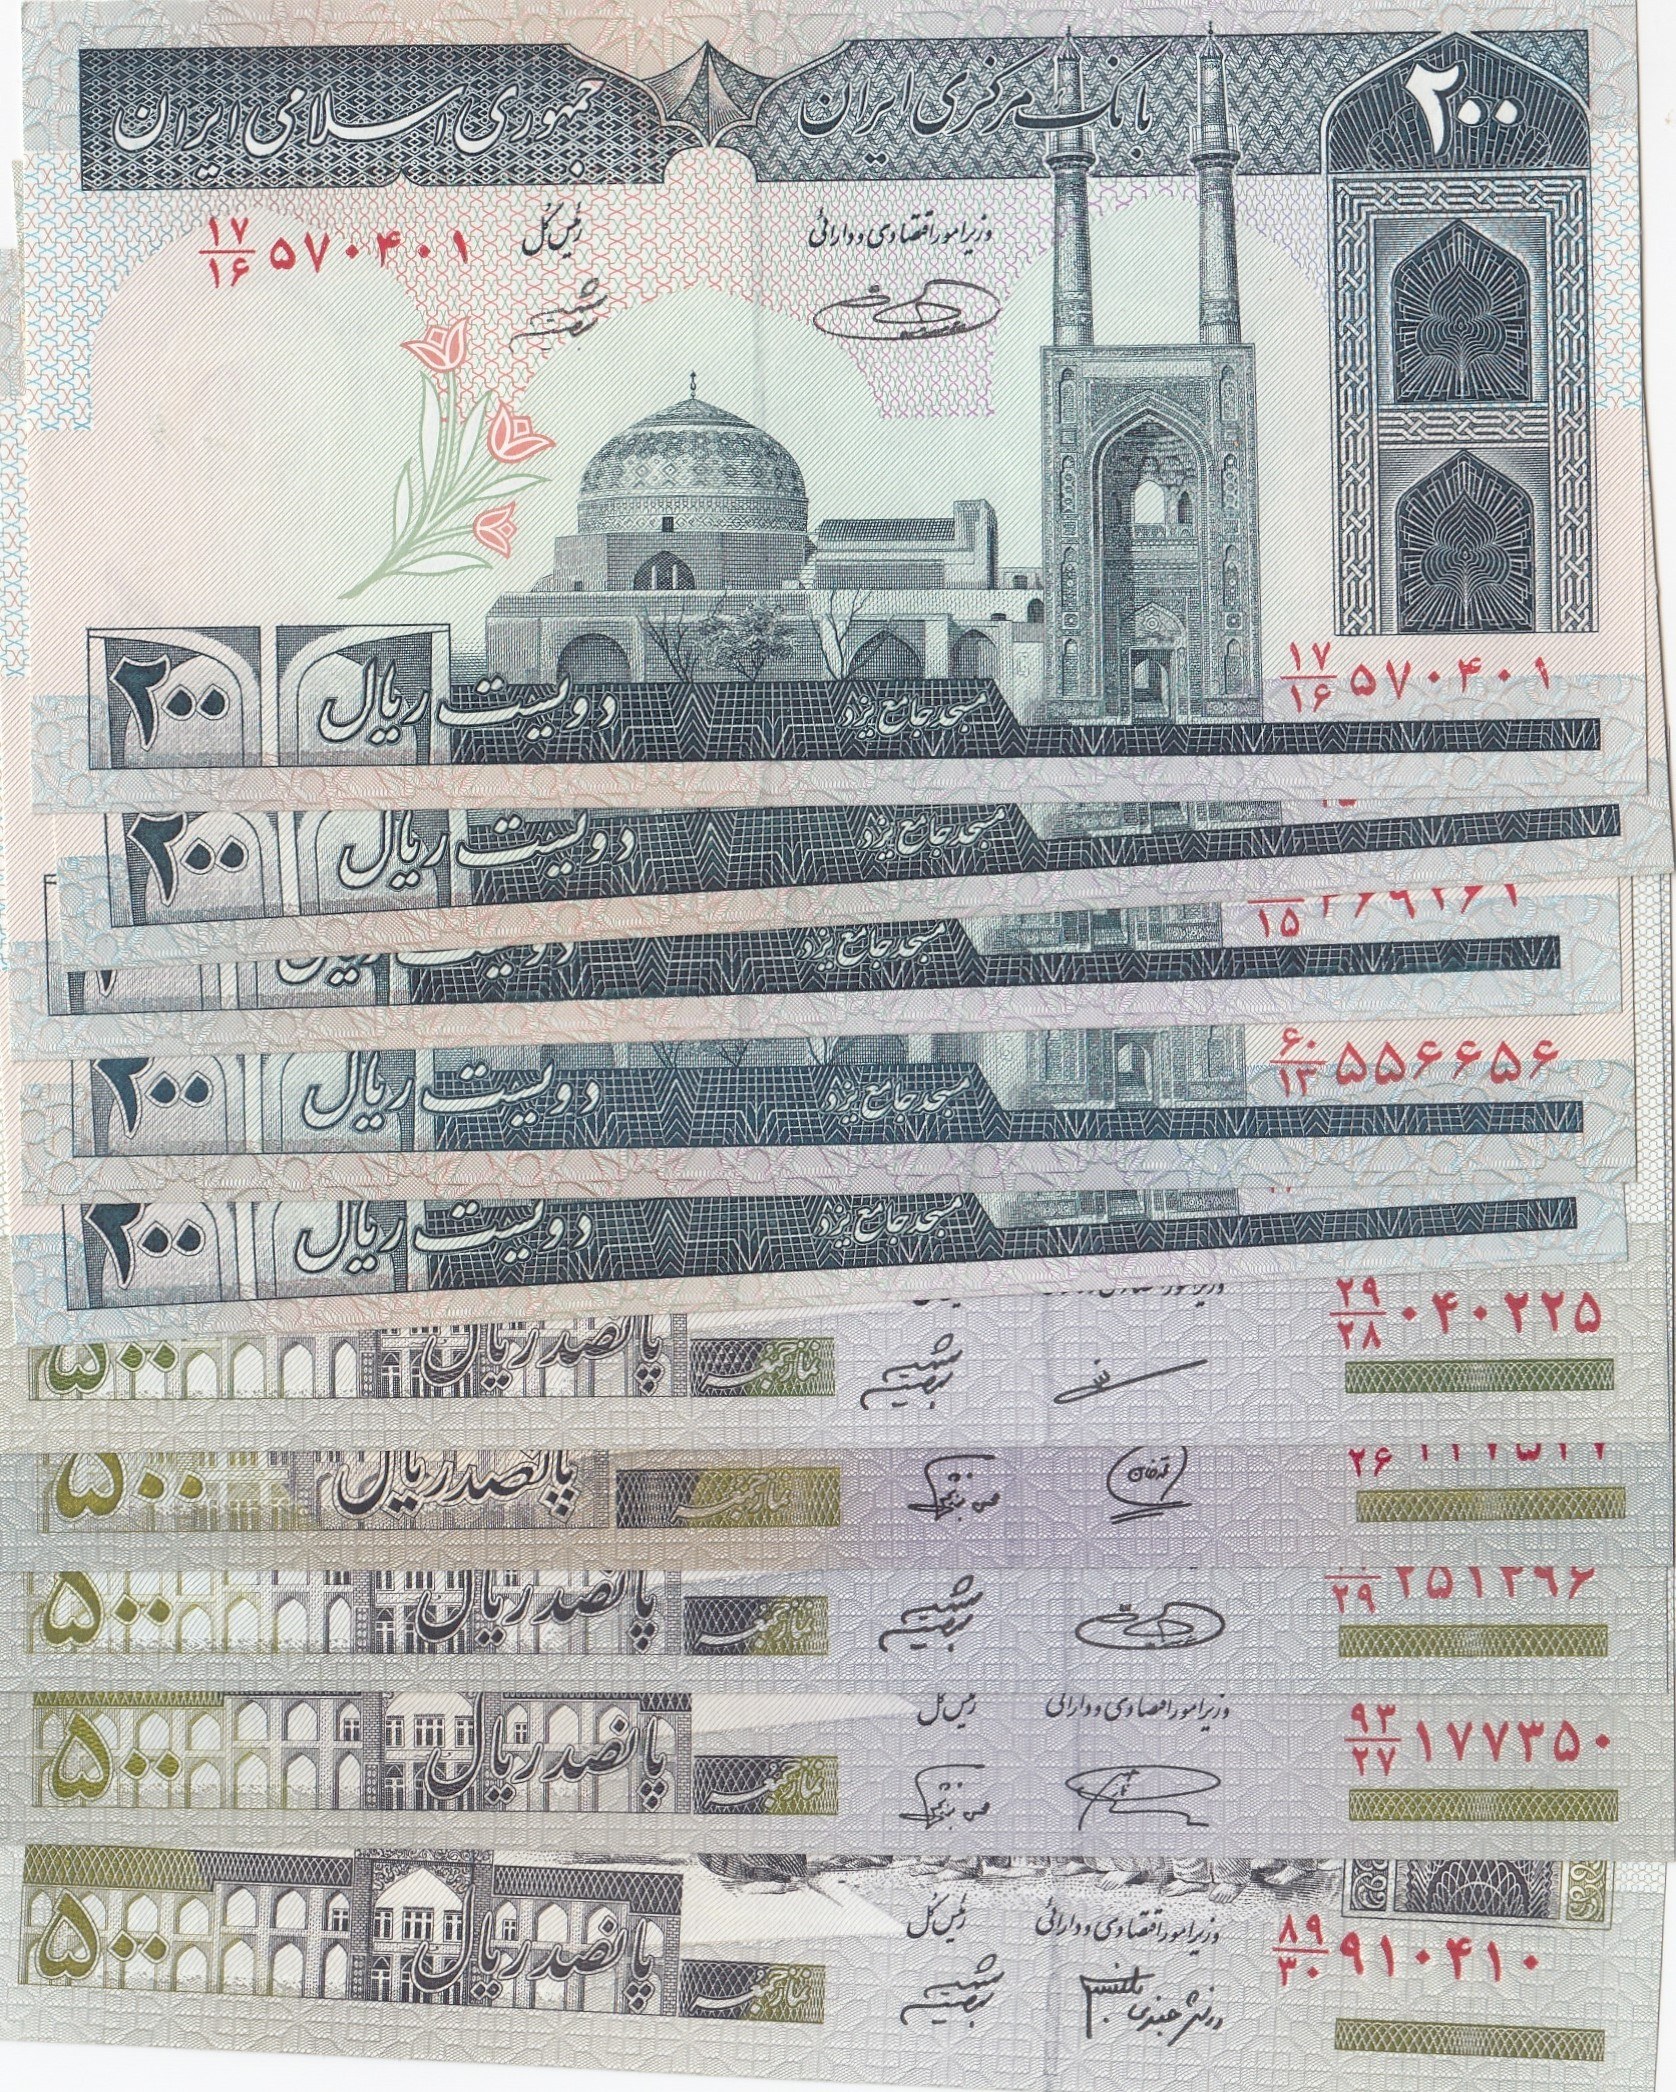 جمهوری اسلامی ایران
بانک مرکزی ایران
۲۰۰
۱۷/۱۶ ۵۷۰۴۰۱
رئیس کل
وزیر امور اقتصادی و دارائی
۱۷/۱۶ ۵۷۰۴۰۱
۲۰۰
دویست ریال
مسجد جامع یزد
۲۰۰
دویست ریال
مسجد جامع یزد
۱۵
دویست ریال
مسجد جامع یزد
۶۰/۱۳ ۵۵۶۶۵۶
۲۰۰
دویست ریال
مسجد جامع یزد
۲۰۰
دویست ریال
مسجد جامع یزد
۲۹/۲۸ ۰۴۰۲۲۵
۵۰۰
پانصد ریال
نماز جمعه
۲۶
۵۰۰
پانصد ریال
نماز جمعه
۲۹ ۲۵۱۲۹۶
۵۰۰
پانصد ریال
نماز جمعه
رئیس کل
وزیر امور اقتصادی و دارائی
۹۳/۲۷ ۱۷۷۳۵۰
۵۰۰
پانصد ریال
نماز جمعه
رئیس کل
وزیر امور اقتصادی و دارائی
۸۹/۳۰ ۹۱۰۴۱۰
۵۰۰
پانصد ریال
نماز جمعه